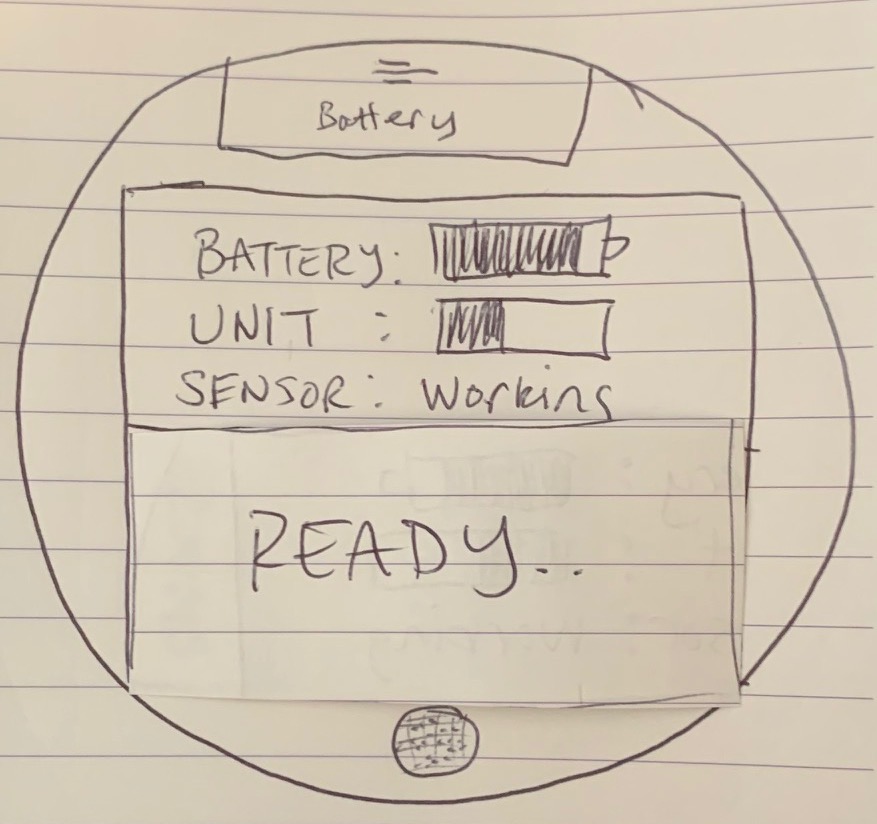 Battery
BATTERY:
UNIT :
SENSOR: Working
READY..